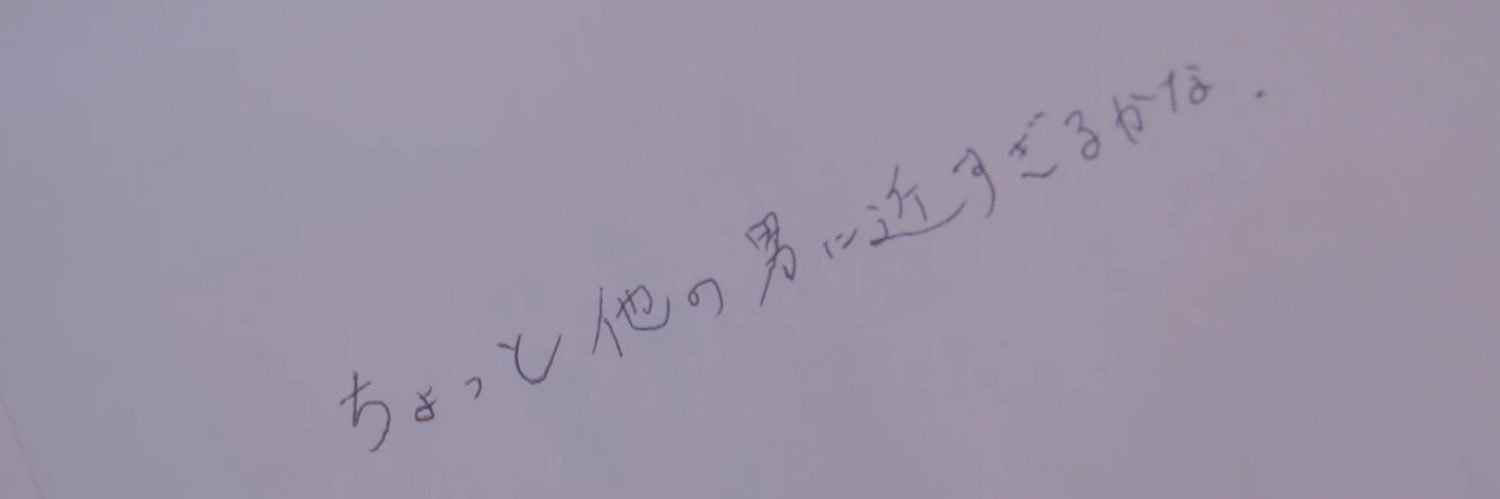 ちょっと他の男に近すぎるかな.